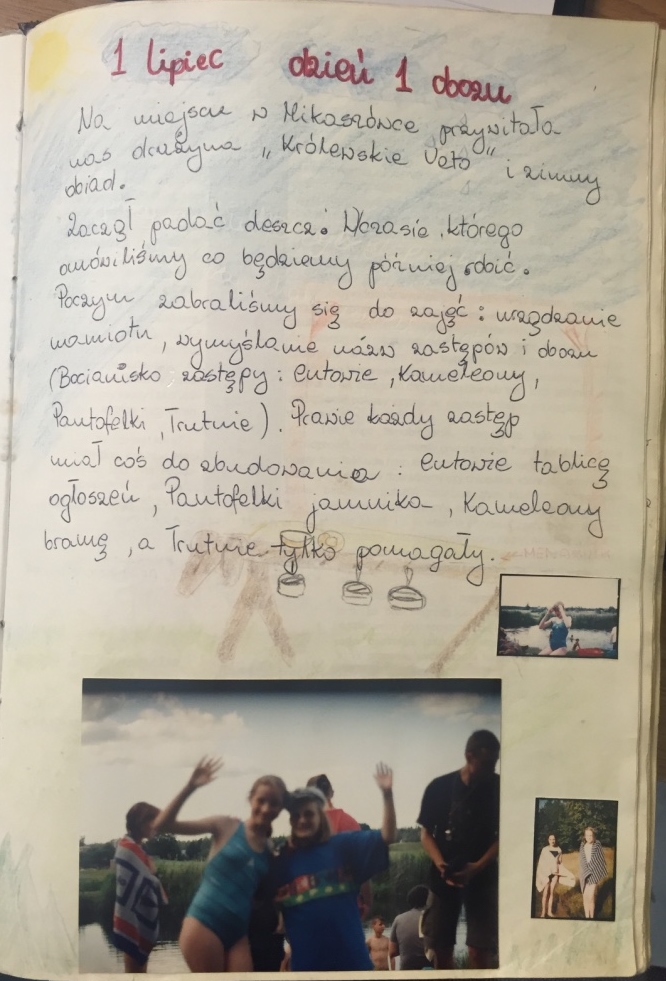 1 lipiec dzień 1 obozu
Na miejscu w Mikaszówce przywitała
nas drużyna „Królewskie Veto” i zimny
obiad.
Zaczął padać deszcz. Wczasie którego
omówiliśmy co będziemy później robić.
Poczym zabraliśmy się do zajęć: urządzanie
namiotu, wymyślanie nazw zastępów i obozu
(Bocianisko zastępy: entowie, Kameleony,
Pantofelki, Trutnie). Prawie każdy zastęp
miał coś do zbudowania: entowie tablicę
ogłoszeń, Pantofelki jamnika, Kameleony
bramę, a Trutnie tylko pomagały.